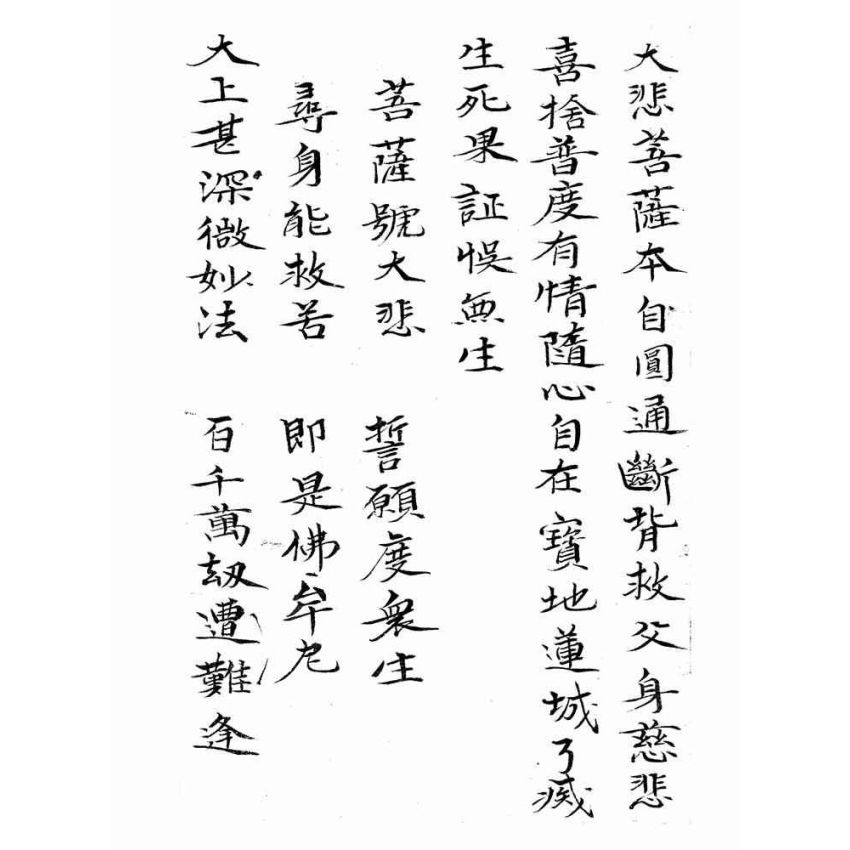 大悲菩薩本自圓通斷背救父身慈悲
喜捨普度有情隨心自在寶地蓮城了滅
生死果証悞無生
菩薩號大悲 誓願度衆生
尋身能救苦 即是佛牟尼
大上甚深微妙法 百千萬劫遭難逢